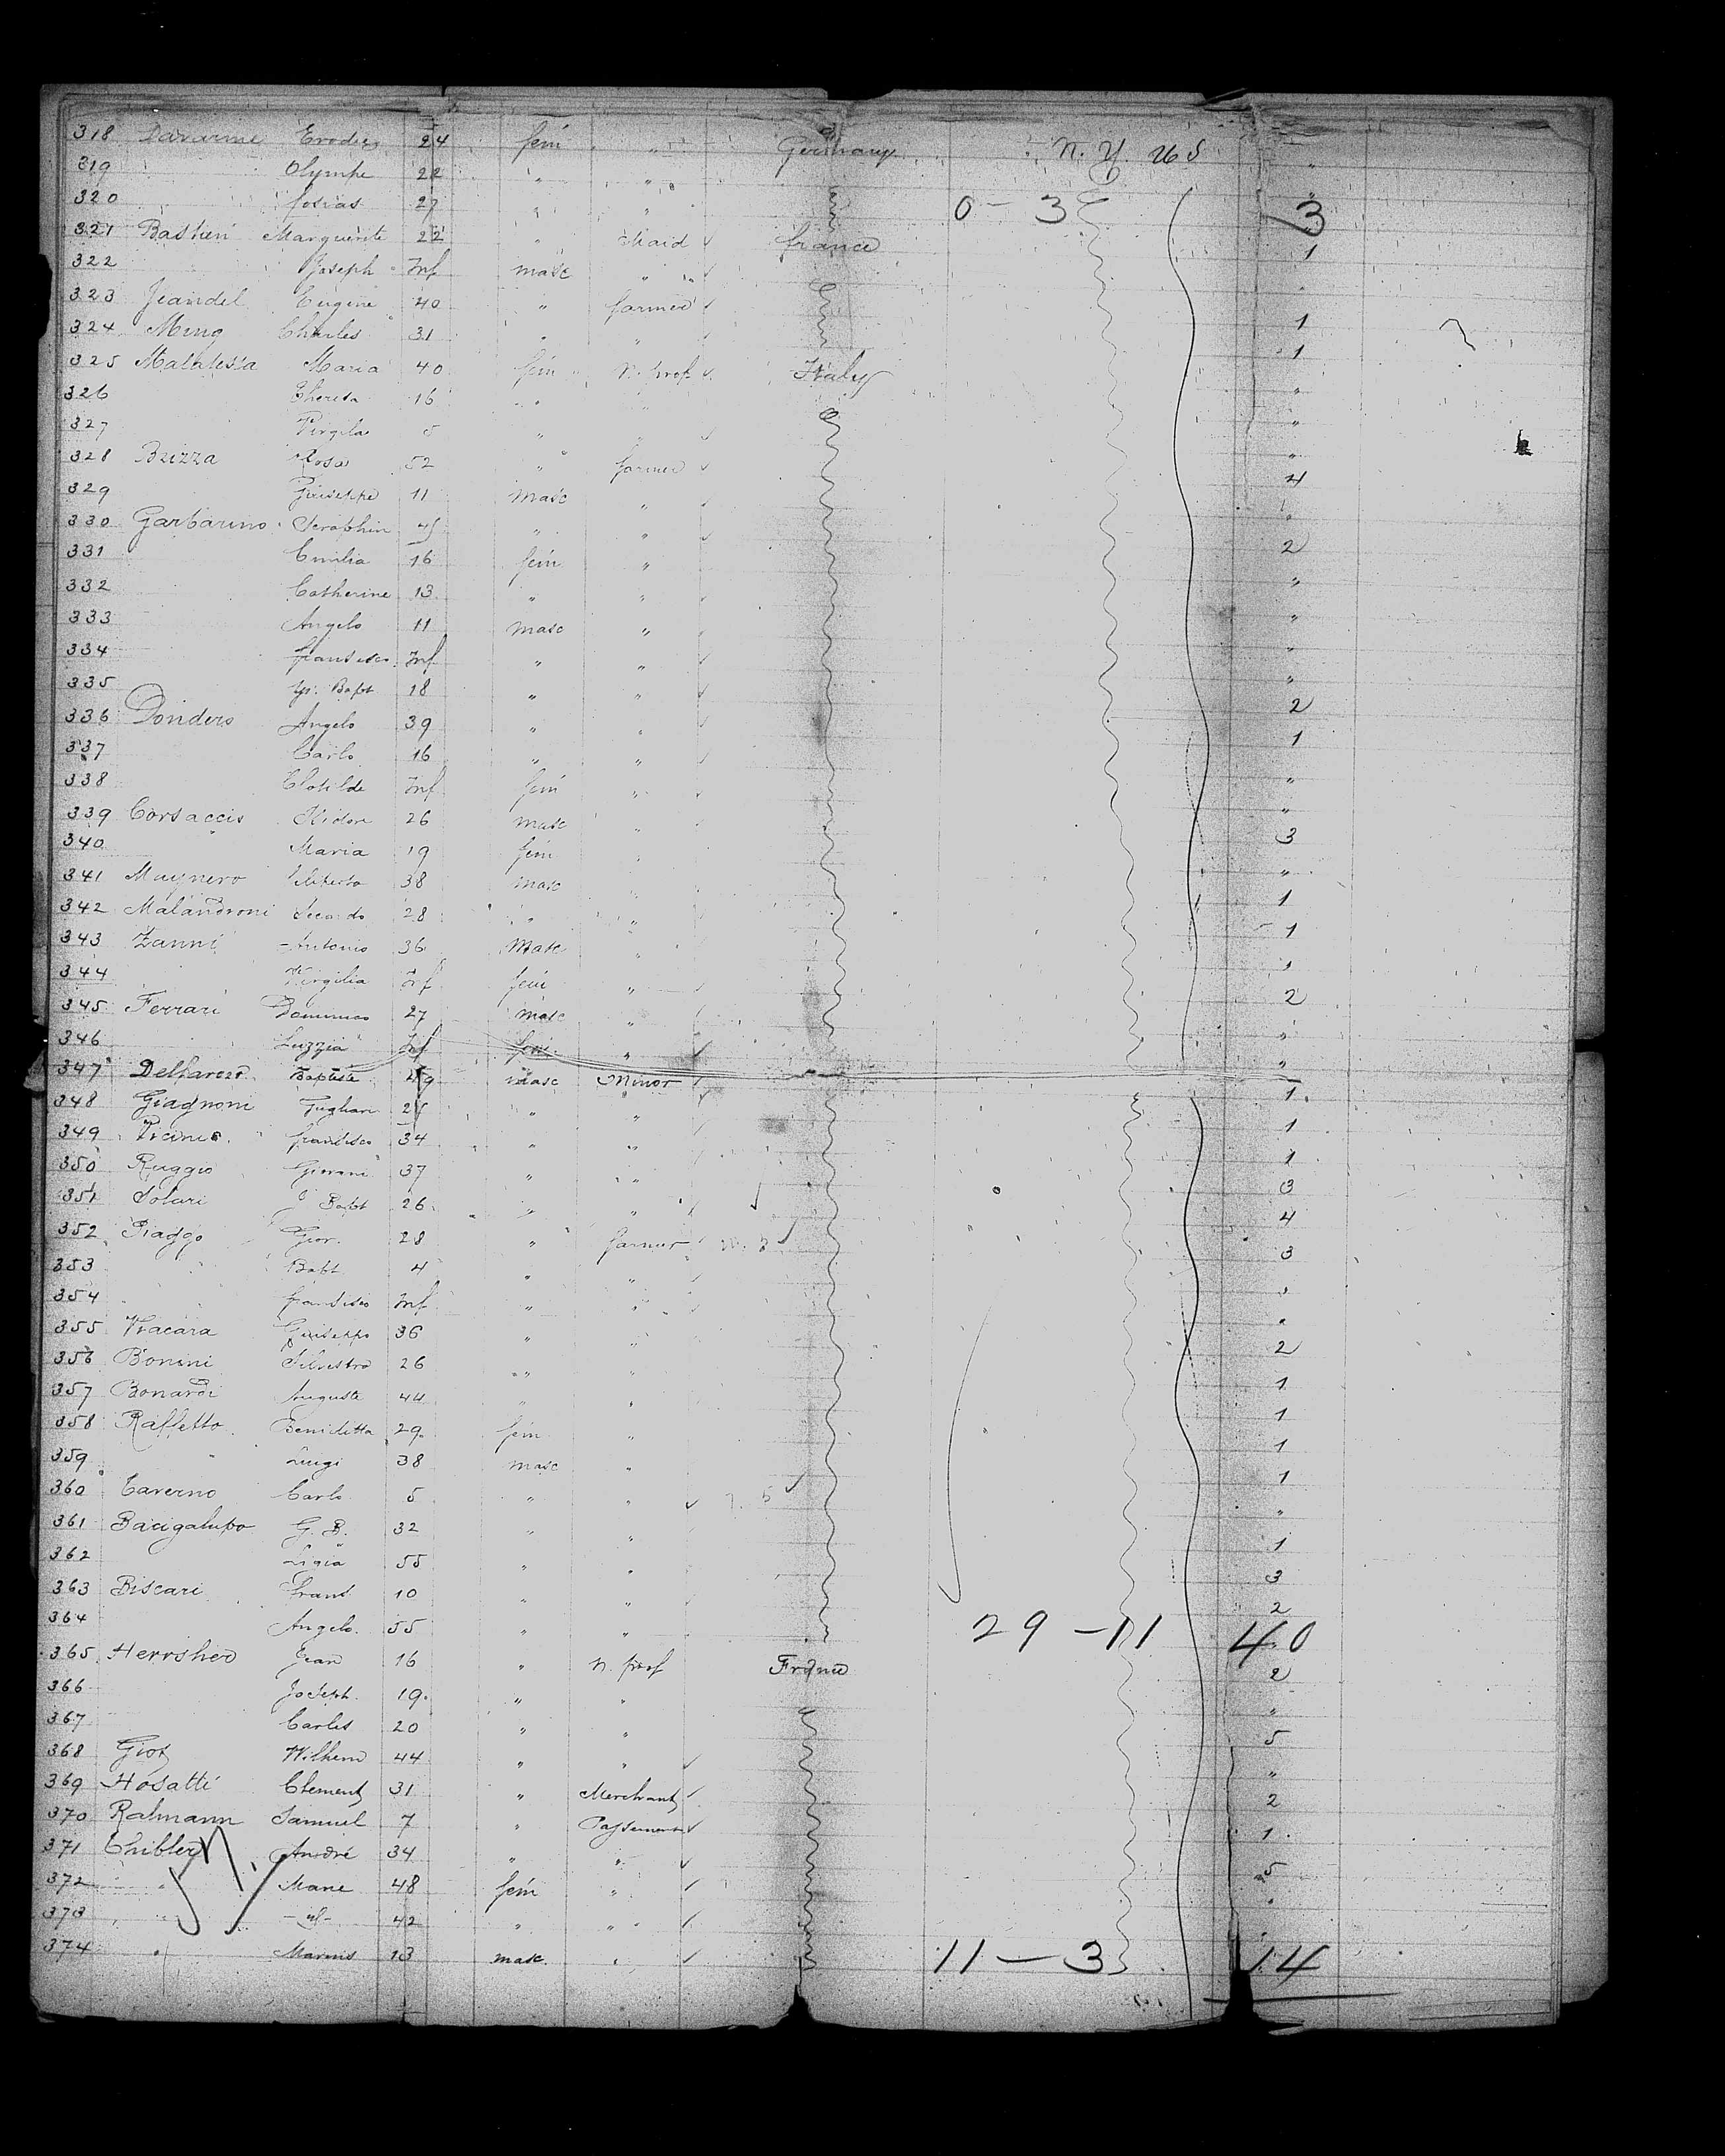 318 Davarine 24 fem " Germany N. Y. US "
319 " Olympe 22 " " "
320 " Josias 27 " " 0 - 3 3
321 Bastien Marguerite 22 " Maid france 1
322 " Joseph Inf masc " "
323 Jeandel Eugene 40 " farmer 1
324 Meng Charles 31 " " 1
325 Malatesta Maria 40 fem n. prof Italy "
326 Theresa 16 " "
327 Virgila 5 " " "
328 Brizza Rosa 52 " farmer 4
329 Giuseppe 11 masc "
330 Garbarino Seraphin 45 " " 2
331 Emilia 16 fem " "
332 Catherine 13 " " "
333 Angelo 11 masc " "
334 fransisco Inf " " "
335 Bapt 18 " " 2
336 Dondero Angelo 39 " " 1
337 Carlo 16 " " "
338 Clotilde Inf fem " "
339 Corsaccis Isidore 26 masc " 3
340 " Maria 19 fem " "
341 Maynero 38 masc 1
342 Malandroni 28 " " 1
343 Zanni Antonio 36 Masc "
344 Virgilia Inf fem " 2
345 Ferrari Dominico 27 masc " "
346 Luzzia Inf fem " "
347 Baptiste 49 masc Minor 1
348 Giagnoni " " 1
349 fransisco 34 " " 1
350 Ruggio Giovani 37 " " 3
351 Solari J Bapt 26 " " 4
352 Giov. 28 " farmer 3
353 " Bapt 4 " "
354 " fransisco Inf " " "
355 Vracara Giuseppe 36 " " 2
356 Bonini Silvestro 26 " " 1
357 Bonardi Auguste 44 " " 1
358 Raffetto Beniditta 29 fem " 1
359 " Luigi 38 masc " 1
360 Caverno Carlo 5 " " "
361 Bacigalupo G. B. 32 " " 1
362 " Ligia 55 " " 3
363 Biscari frans 10 " " 2
364 Angelo 55 " " 29 - 11 40
365 Herrsher Jean 16 " n. prof France 2
366 Joseph 19 " " "
367 Carles 20 " " 5
368 Wilhem 44 " " "
369 Hosatti Clement 31 " Merchant 2
370 Ralmann Samuel 7 " 1
371 André 34 " " 5
372 " Marie 48 fem " "
373 " 42 " "
374 " Marius 13 masc " 11 - 3 14